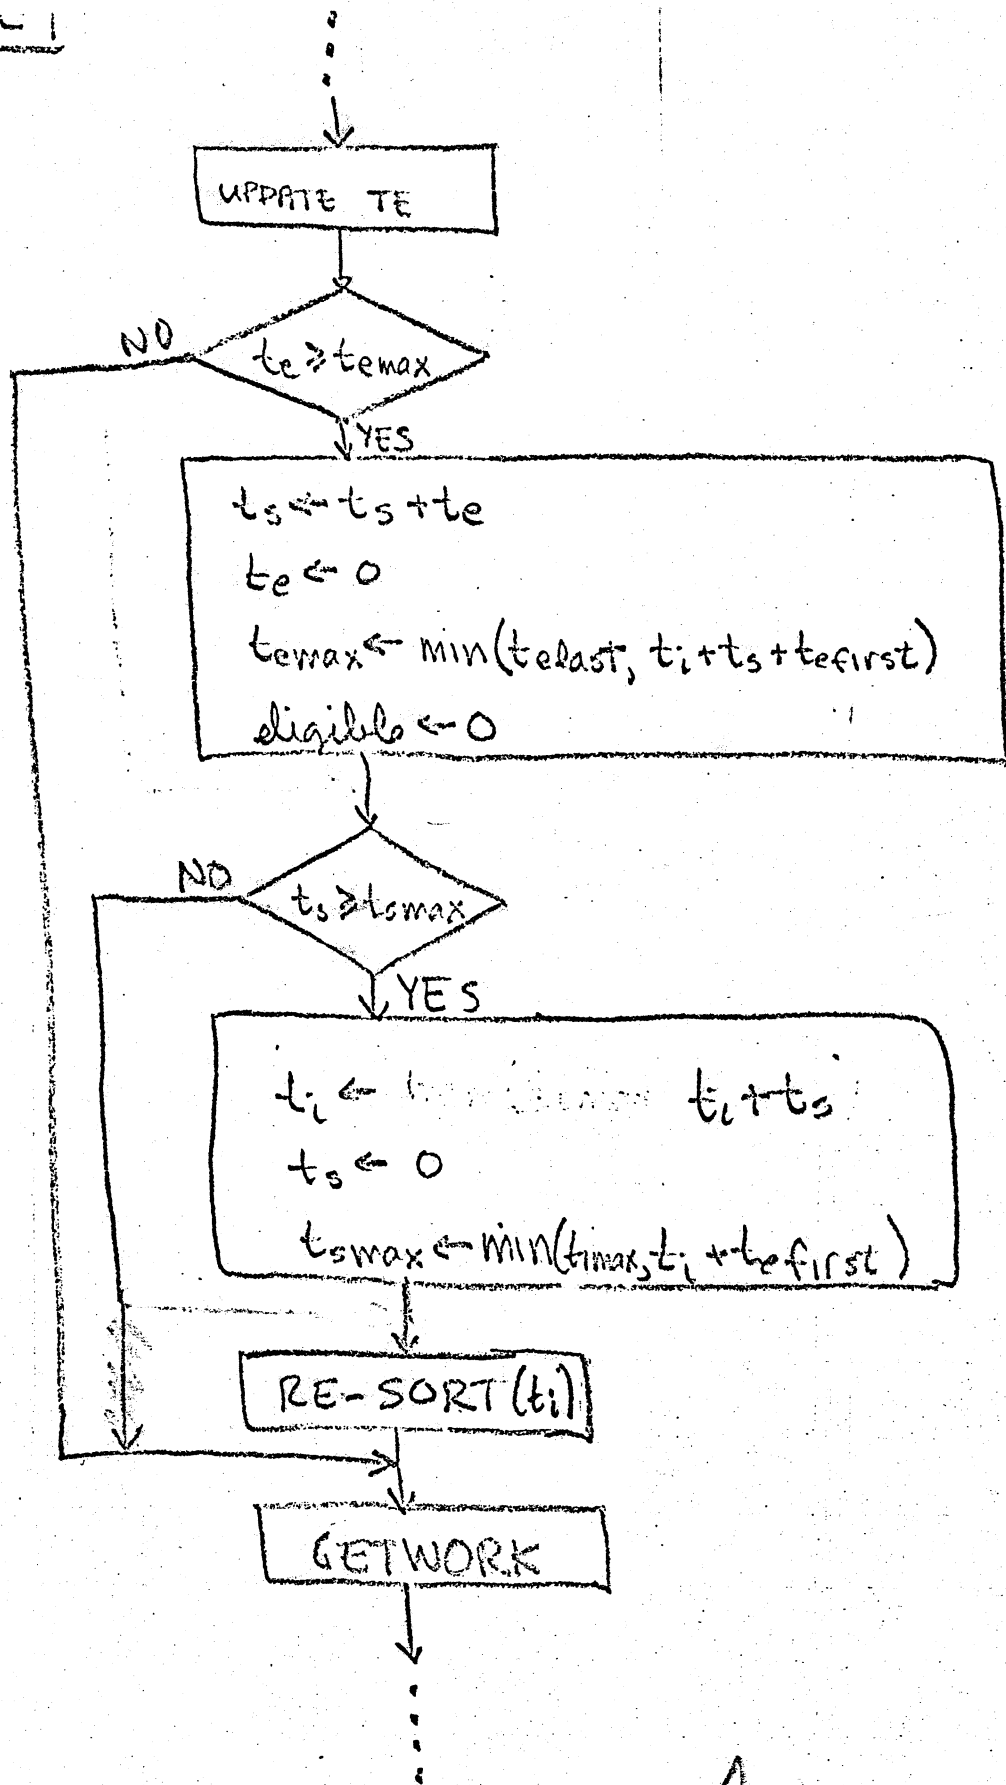 UPDATE TE
NO
te ≥ temax
YES
ts ← ts + te
te ← 0
temax ← min(telast, ti + ts + tefirst)
eligible ← 0
NO
ts ≥ tsmax
YES
ti ← ti + ts
ts ← 0
tsmax ← min(timax, ti + tefirst)
RE-SORT (ti)
GETWORK